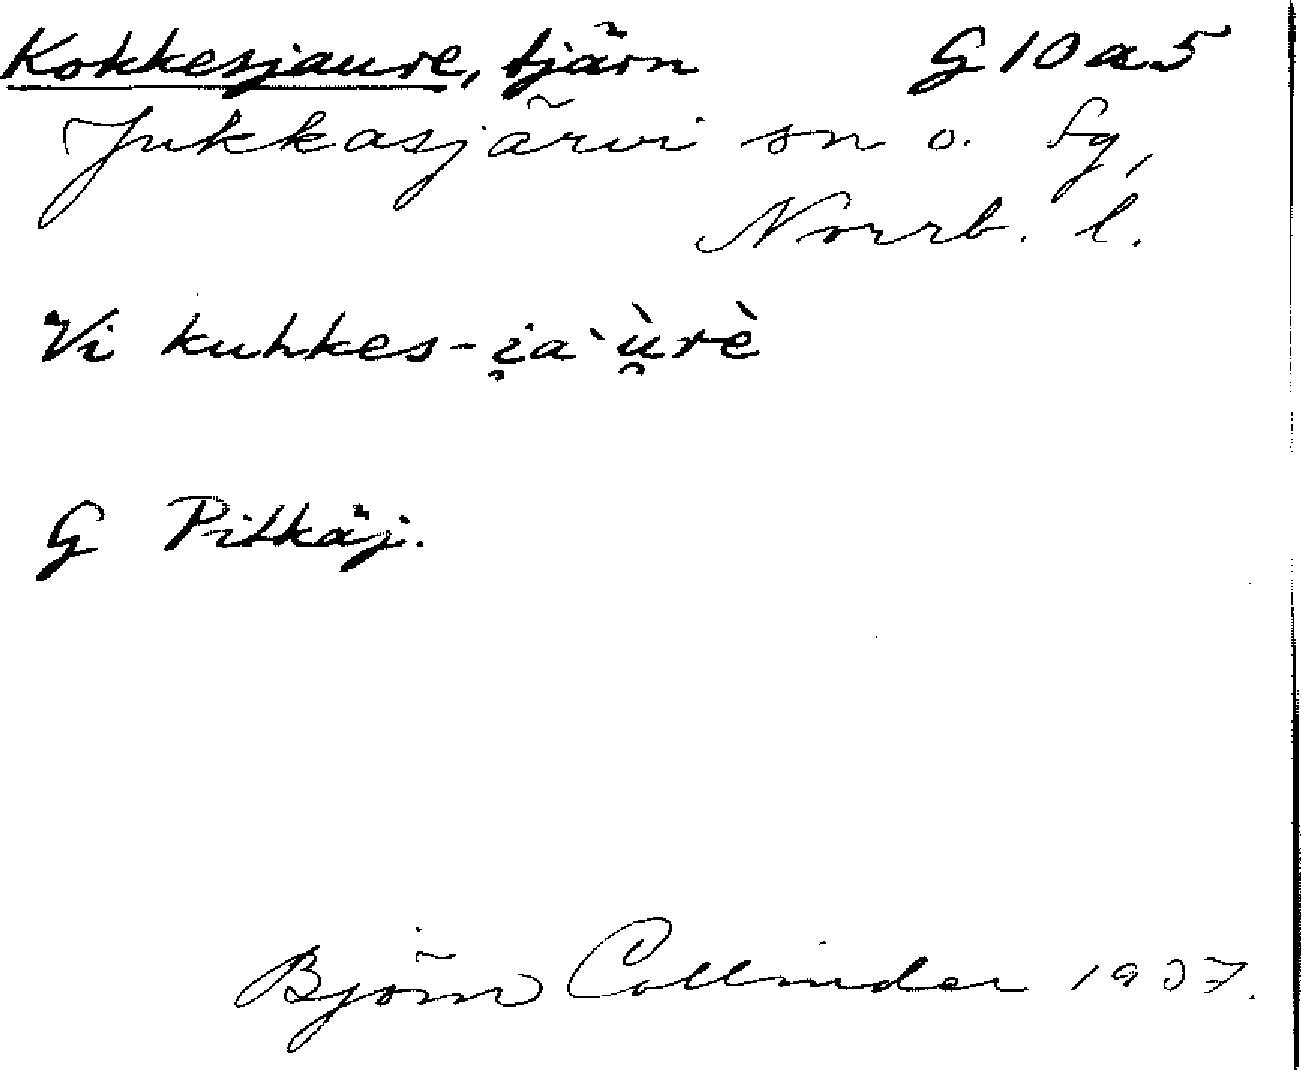 Kokkesjaure, tjärn G 10 a 5
Jukkasjärvi sn o. fg,
Norrb. l.
Vi kuhkes-i̯a`ù̯rè
G Pitkäj.
Björn Collinder 1937.